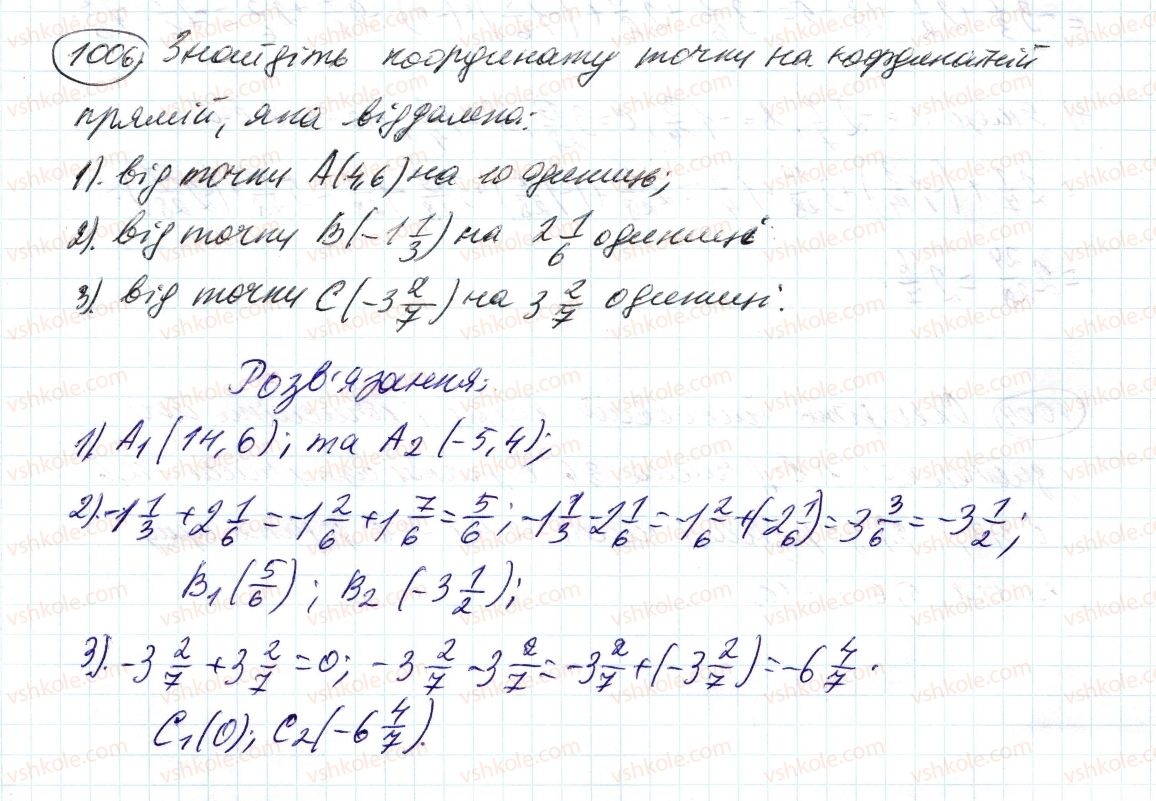 1006) Знайдіть координату точки на координатній
прямій, яка віддалена:
1). від точки A(4,6) на 10 одиниць;
2). від точки B(-1 1/3) на 2 1/6 одиниці
3). від точки C(-3 2/7) на 3 2/7 одиниці.
Розв'язання:
1) A₁(14,6); та A₂(-5,4);
2). -1 1/3 + 2 1/6 = -1 2/6 + 1 7/6 = 5/6; -1 1/3 - 2 1/6 = -1 2/6 + (-2 1/6) = -3 3/6 = -3 1/2;
B₁(5/6); B₂(-3 1/2);
3). -3 2/7 + 3 2/7 = 0; -3 2/7 - 3 2/7 = -3 2/7 + (-3 2/7) = -6 4/7.
C₁(0); C₂(-6 4/7).